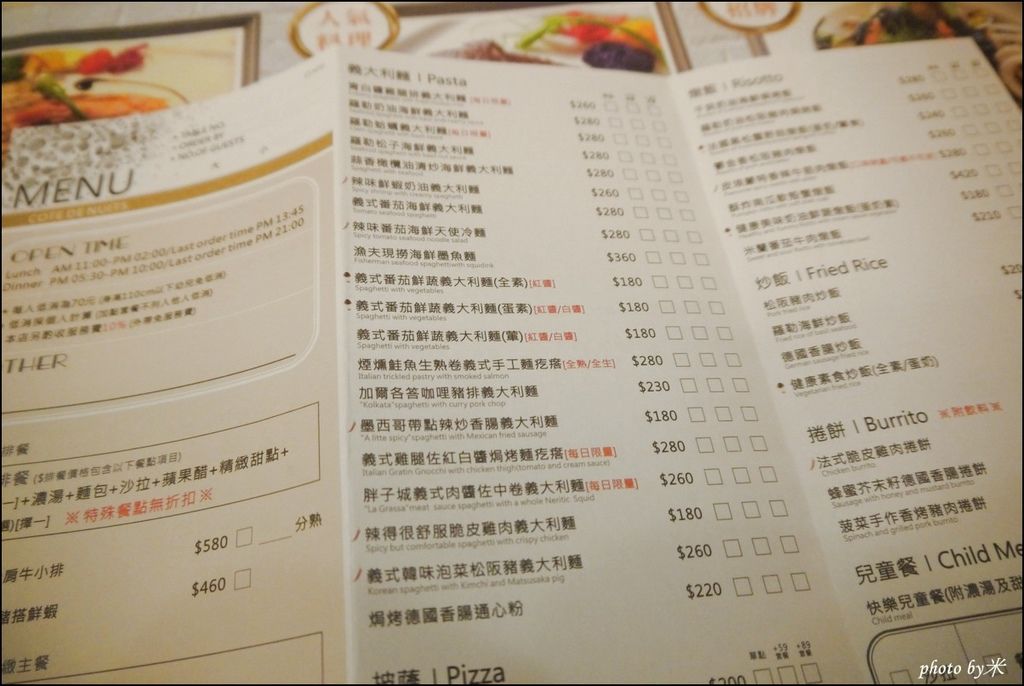 人氣
料理
招牌
• TABLE NO.
• ORDER BY
• NO.OF GUESTS
大 小
MENU
COTE DE NUITS
OPEN TIME
Lunch AM 11:00-PM 02:00/Last order time PM 13:45
Dinner PM 05:30-PM 10:00/Last order time PM 21:00
• 每人低消為70元 (身高110cm以下幼兒免低消)
本店另酌收服務費10% (外帶免服務費)
THER
排餐
排餐 ($排餐價格包含以下餐點項目)
一]+濃湯+麵包+沙拉+蘋果醋+精緻甜點+
[擇一] ※特殊餐點無折扣※
$580 分熟
肩牛小排
$460
豬搭鮮蝦
緻主餐
義大利麵 | Pasta
青白醬雞腿排義大利麵 [每日限量] $260
羅勒奶油海鮮義大利麵 $280
羅勒蛤蠣義大利麵 [每日限量] $280
羅勒松子海鮮義大利麵 $280
蒜香橄欖油清炒海鮮義大利麵 $280
Spaghetti with seafood
辣味鮮蝦奶油義大利麵 $260
Spicy shrimp with creamy spaghetti
義式番茄海鮮義大利麵 $280
Tomato seafood spaghetti
辣味番茄海鮮天使冷麵 $280
Spicy tomato seafood noodle salad
漁夫現撈海鮮墨魚麵 $360
Fisherman seafood spaghetti with squidink
義式番茄鮮蔬義大利麵(全素)[紅醬] $180
Spaghetti with vegetables
義式番茄鮮蔬義大利麵(蛋素)[紅醬/白醬] $180
Spaghetti with vegetables
義式番茄鮮蔬義大利麵(葷)[紅醬/白醬] $180
Spaghetti with vegetables
煙燻鮭魚生熟卷義式手工麵疙瘩[全熟/全生] $280
Italian trickled pastry with smoked salmon
加爾各答咖哩豬排義大利麵 $230
"Kolkata"spaghetti with curry pork chop
墨西哥帶點辣炒香腸義大利麵 $180
"A litte spicy"spaghetti with Mexican fried sausage
義式雞腿佐紅白醬焗烤麵疙瘩[每日限量] $280
Italian Gratin Gnocchi with chicken thigh(tomato and cream sauce)
胖子城義式肉醬佐中卷義大利麵[每日限量] $260
"La Grassa"meat sauce spaghetti with a whole Neritic Squid
辣得很舒服脆皮雞肉義大利麵 $180
Spicy but comfortable spaghetti with crispy chicken
義式韓味泡菜松阪豬義大利麵 $260
Korean spaghetti with Kimchi and Matsusaka pig
焗烤德國香腸通心粉 $220
披薩 | Pizza
單點 +59 套餐 +89 套餐
$200
燉飯 | Risotto
$280
$240
$260
$280
$420
$180
健康美味奶油鮮蔬燉飯(蛋奶素) $210
米蘭番茄牛肉燉飯
炒飯 | Fried Rice
松阪豬肉炒飯
Pork fried rice
羅勒海鮮炒飯
德國香腸炒飯
German sausage fried rice
健康素食炒飯(全素/蛋奶)
Vegetarian fried rice
捲餅 | Burrito ※附飲料※
法式脆皮雞肉捲餅
Chicken burrito
蜂蜜芥末籽德國香腸捲餅
Sausage with honey and mustard burrito
菠菜手作香烤豬肉捲餅
Spinach and grilled pork burrito
兒童餐 | Child Me
快樂兒童餐(附濃湯及甜
Child meal
沙拉
photo by米